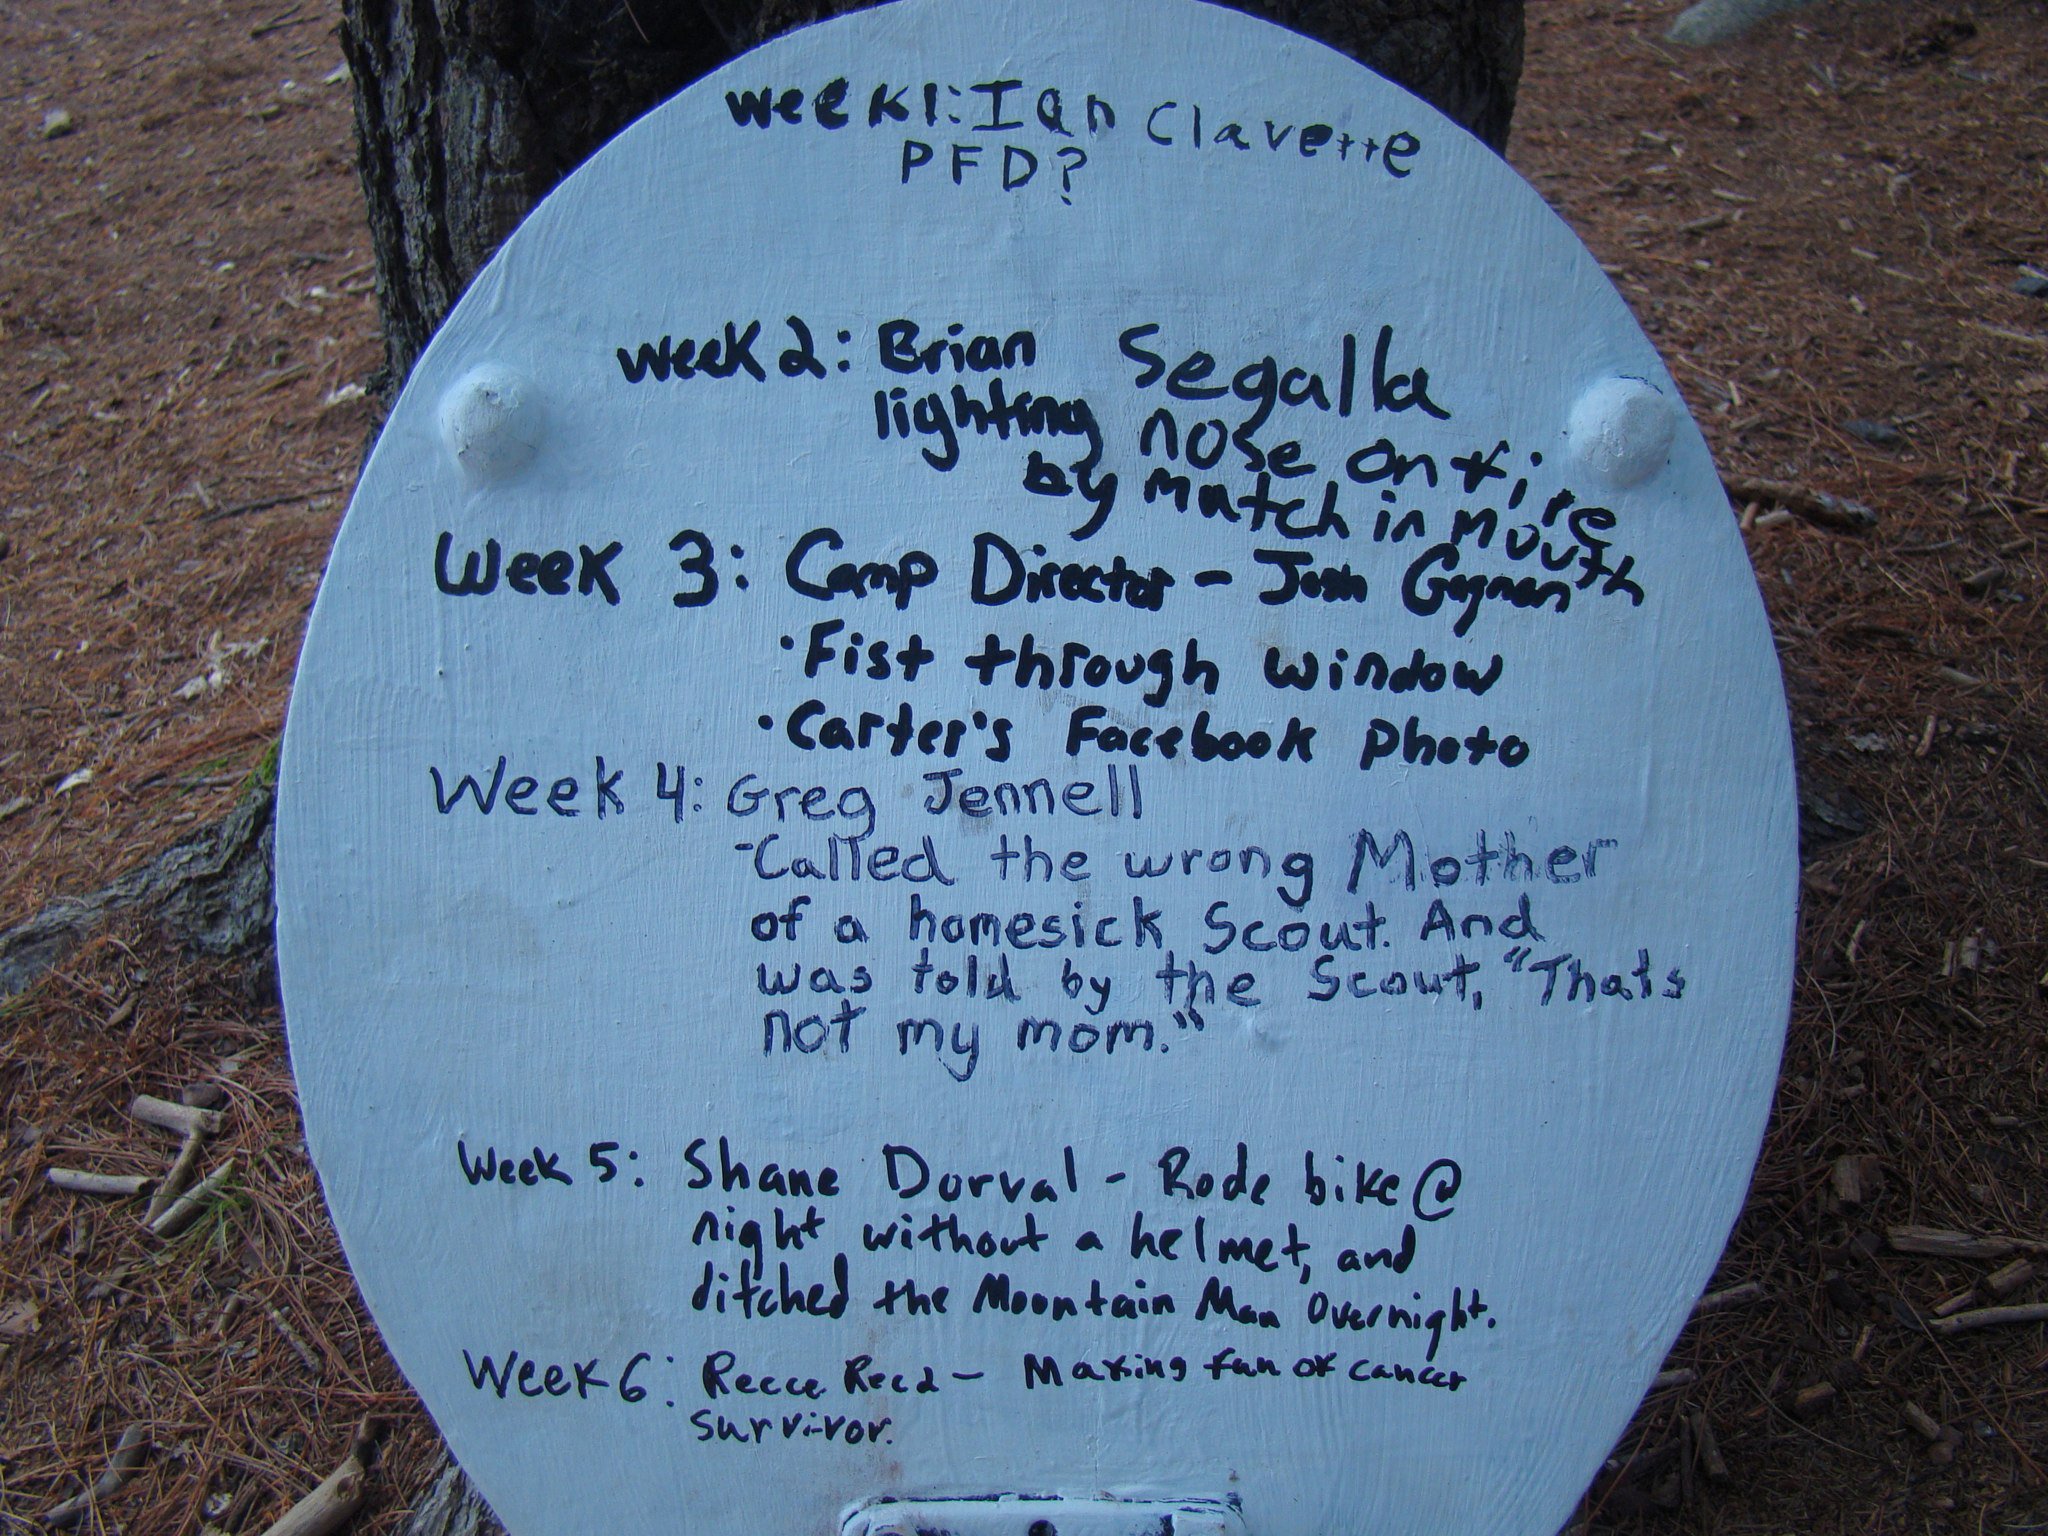 Week 1: Ian Clavette
PFD?
Week 2: Brian Segalla
lighting nose on fire
by match in mouth
Week 3: Camp Director - Josh Gagnon
• Fist through window
• Carter's Facebook photo
Week 4: Greg Jennell
- Called the wrong Mother
of a homesick Scout. And
was told by the Scout, "Thats
not my mom."
Week 5: Shane Dorval - Rode bike @
night without a helmet, and
ditched the Mountain Man Overnight.
Week 6: Reece - Making fun of cancer
survivor.